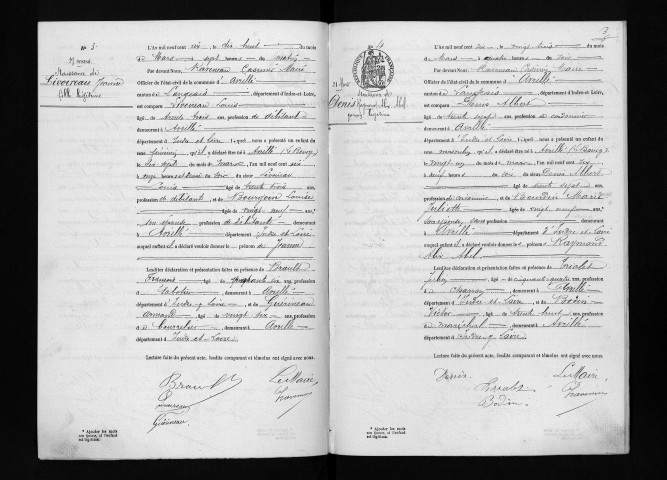 N° 3
17 mars
Naissance de
Livereau Jeanne
fille légitime
L'An mil neuf cent six le dix huit du mois
de Mars sept heures du matin
Par devant Nous, Maire
Officier de l'état-civil de la commune d' Avrillé
canton de Langeais, département d'Indre-et-Loire,
est comparu Louis
âgé de trente trois ans, profession de débitant
demeurant à Avrillé
département d' Indre et Loire, lequel nous a présenté un enfant du
sexe féminin, qu'il a déclaré être né à Avrillé (le Bourg)
le dix sept du mois de mars, l'an mil neuf cent six
à onze heures du soir de
Louis, âgé de trente trois ans,
profession de débitant et de Bourgoin Louise
âgée de vingt neuf ans,
son épouse profession de débitante, demeurant à
Avrillé département Indre et Loire
auquel enfant il a déclaré vouloir donner le prénom de Jeanne
Lesdites déclaration et présentation faites en présence de Brault
âgé de ans, profession
d demeurant à Avrillé
département d' Indre et Loire, et de Guérineau
Armand âgé de vingt six ans, profession
de bourrelier, demeurant à Avrillé
département d' Indre et Loire
Lecture faite du présent acte, lesdits comparant et témoins ont signé avec nous.
Brault Le Maire
Guérineau
* Ajouter les mots
son épouse, si l'enfant
est légitime.
3
N° 4
21 Mars
Naissance de
Denis Raymond Alix Abel
garçon légitime
L'An mil neuf cent six le vingt trois du mois
de Mars à quatre heures du soir
Par devant Nous, Maire
Officier de l'état-civil de la commune d' Avrillé
canton de Langeais, département d'Indre-et-Loire,
est comparu Denis Albert
âgé de trente sept ans, profession de cordonnier
demeurant à Avrillé
département d' Indre et Loire, lequel nous a présenté un enfant du
sexe masculin, qu'il a déclaré être né à Avrillé (le Bourg)
le vingt un du mois de mars, l'an mil neuf cent six
à neuf heures du soir de Denis Albert
âgé de trente sept ans,
profession de cordonnier et de Boudin Marie
Juliette âgée de vingt neuf ans,
son épouse profession, demeurant à
Avrillé département d' Indre et Loire
auquel enfant il a déclaré vouloir donner les prénoms de Raymond
Alix Abel
Lesdites déclaration et présentation faites en présence de Triolet
âgé de cinquante quatre ans, profession
de demeurant à Avrillé
département d' Indre et Loire, et de Bodin
Victor âgé de trente huit ans, profession
de maréchal, demeurant à Avrillé
département d' Indre et Loire
Lecture faite du présent acte, lesdits comparant et témoins ont signé avec nous.
Denis Le Maire
Triolet
Bodin
* Ajouter les mots
son épouse, si l'enfant
est légitime.